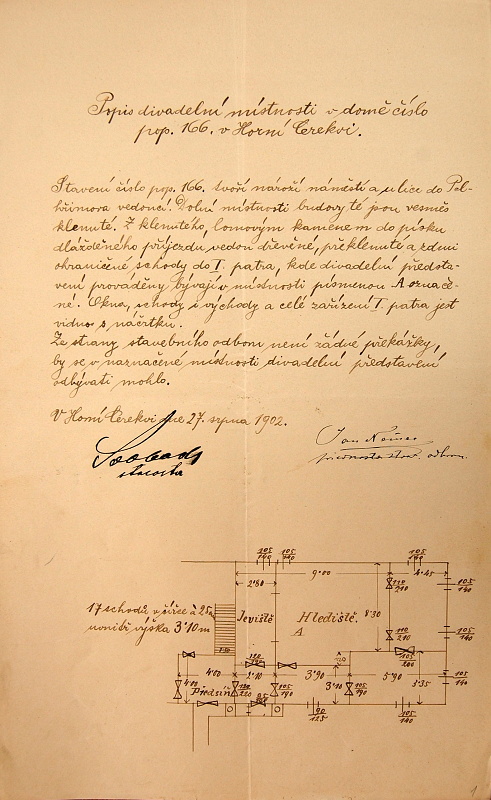 Popis divadelní místnosti v domě číslo
pop. 166. v Horní Cerekvi.
Stavení číslo pop. 166. tvoří nároží náměstí a ulice do Pel-
hřimova vedoucí. Dolní místnosti budovy té jsou vesměs
klenuté. Z klenutého, lomovým kamenem do písku
dlážděného příjezdu vedou dřevěné, překlenuté a zdmi
ohraničené schody do I. patra, kde divadelní předsta-
vení prováděny bývají v místnosti písmenou A označe-
né. Okna, schody i východy a celé zařízení I. patra jest
vidno s náčrtku.
Ze strany stavebního odboru není žádné překážky,
by se v naznačené místnosti divadelní představení
odbývati mohlo.
V Horní Cerekvi dne 27. srpna 1902.
Svoboda
starosta
Jan Němec
přednosta stav. odboru.
105/140 105/140 105/140
9·00 4·45
2·80
17 schodů v šířce à 25
výška 3·10 m
Jeviště
Hlediště.
A
8·30
110/210
105/140
110/210
105/140
105/200
4·00 2·10 3·90 5·90
105/140
4·00
Předsíň
105/190
3·10
105/190
5·35
90/125
105/140
1